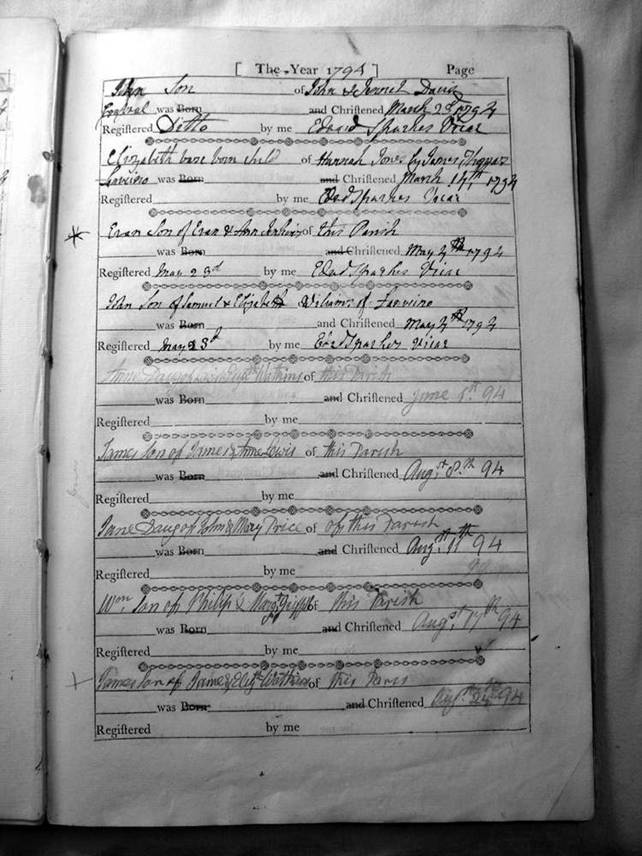 [ The Year 1794 ] Page
John Son of John & Jennet Davis
was Born and Christened March 2d 1794
Registered Ditto by me Edward Sparkes Vicar
Elizabeth base born Child of Hannah Jones by James
was Born and Christened March 14th 1794
Registered by me Edwd Sparkes Vicar
Evan Son of Evan & Ann of this Parish
was Born and Christened May 4th 1794
Registered May 23d by me Edwd Sparkes Vicar
John Son of Samuel & Elizabeth Williams of
was Born and Christened May 4th 1794
Registered May 23d by me Edwd Sparkes Vicar
Anne Daug of Watkins of this Parish
was Born and Christened June 94
Registered by me
James Son of James & Anne Lewis of this Parish
was Born and Christened Augst 8th 94
Registered by me
Jane Daug of John & Mary Price of of this Parish
was Born and Christened Augst 94
Registered by me
Wm Son of Philip & Margt of this Parish
was Born and Christened Augst 17th 94
Registered by me
James Son of James & Eliz Watkins of this Parish
was Born and Christened 94
Registered by me